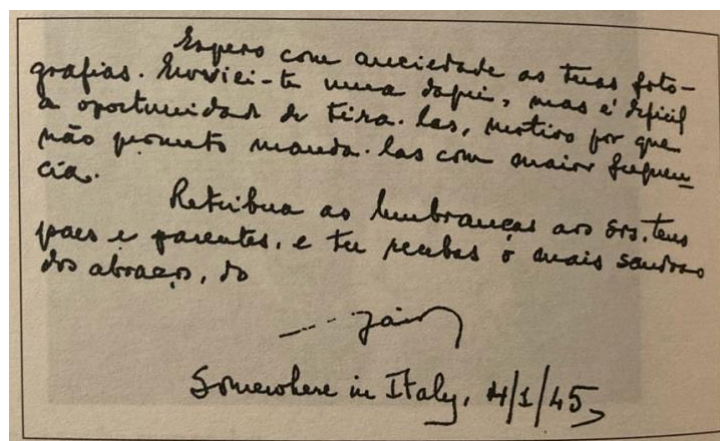 Espero com anciedade as tuas foto-
grafias. Enviei-te uma daqui, mas é dificil
a oportunidade de tira-las, motivo por que
não prometo manda-las com maior frequen
cia.
Retribua as lembranças aos srs. teus
paes e parentes, e tu recebas o mais saudoso
dos abraços, do
Jair
Somewhere in Italy, 4/1/45